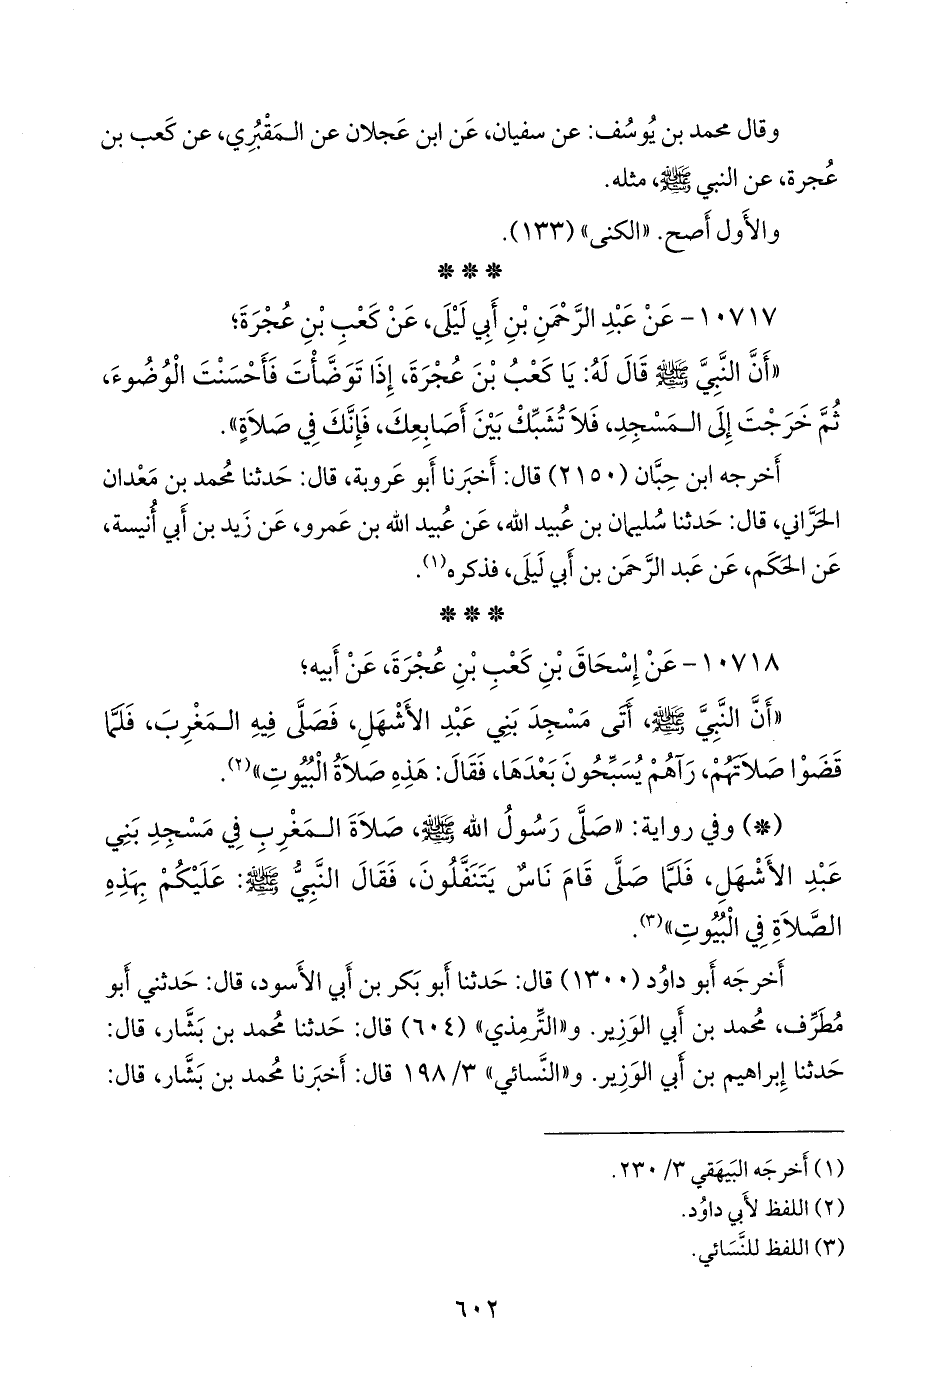 وقال محمد بن يُوسُف: عن سفيان، عَن ابن عَجلان عن الـمَقْبُري، عن كَعب بن
عُجرة، عن النبي ﷺ، مثله.
والأَول أَصح. «الكنى» (١٣٣).
* * *
١٠٧١٧ - عَنْ عَبْدِ الرَّحْمَنِ بْنِ أَبِي لَيْلَى، عَنْ كَعْبِ بْنِ عُجْرَةَ؛
«أَنَّ النَّبِيَّ ﷺ قَالَ لَهُ: يَا كَعْبُ بْنَ عُجْرَةَ، إِذَا تَوَضَّأْتَ فَأَحْسَنْتَ الْوُضُوءَ،
ثُمَّ خَرَجْتَ إِلَى الـمَسْجِدِ، فَلاَ تُشَبِّكْ بَيْنَ أَصَابِعِكَ، فَإِنَّكَ فِي صَلاَةٍ».
أَخرجه ابن حِبَّان (٢١٥٠) قال: أَخبَرنا أَبو عَروبة، قال: حَدثنا مُحمد بن مَعْدان
الحَرَّاني، قال: حَدثنا سُليمان بن عُبيد الله، عَن عُبيد الله بن عَمرو، عَن زَيد بن أَبي أُنيسة،
عَن الحَكَم، عَن عَبد الرَّحمَن بن أَبي لَيلَى، فذكره(١).
* * *
١٠٧١٨ - عَنْ إِسْحَاقَ بْنِ كَعْبِ بْنِ عُجْرَةَ، عَنْ أَبِيه؛
«أَنَّ النَّبِيَّ ﷺ، أَتَى مَسْجِدَ بَنِي عَبْدِ الأَشْهَلِ، فَصَلَّى فِيهِ الـمَغْرِبَ، فَلَمَّا
قَضَوْا صَلاَتَهُمْ، رَآهُمْ يُسَبِّحُونَ بَعْدَهَا، فَقَالَ: هَذِهِ صَلاَةُ الْبُيُوتِ»(٢).
(*) وفي رواية: «صَلَّى رَسُولُ الله ﷺ، صَلاَةَ الـمَغْرِبِ فِي مَسْجِدِ بَنِي
عَبْدِ الأَشْهَلِ، فَلَمَّا صَلَّى قَامَ نَاسٌ يَتَنَفَّلُونَ، فَقَالَ النَّبِيُّ ﷺ: عَلَيْكُمْ بِهَذِهِ
الصَّلاَةِ فِي الْبُيُوتِ»(٣).
أَخرجَه أَبو داوُد (١٣٠٠) قال: حَدثنا أَبو بَكر بن أَبي الأَسود، قال: حَدثني أَبو
مُطَرِّف، مُحمد بن أَبي الوَزير. و«التِّرمِذي» (٦٠٤) قال: حَدثنا مُحمد بن بَشَّار، قال:
حَدثنا إِبراهيم بن أَبي الوَزير. و«النَّسائي» ٣/ ١٩٨ قال: أَخبَرنا مُحمد بن بَشَّار، قال:
(١) أَخرجَه البَيهَقي ٣/ ٢٣٠.
(٢) اللفظ لأَبي داوُد.
(٣) اللفظ للنَّسَائي.
٦٠٢